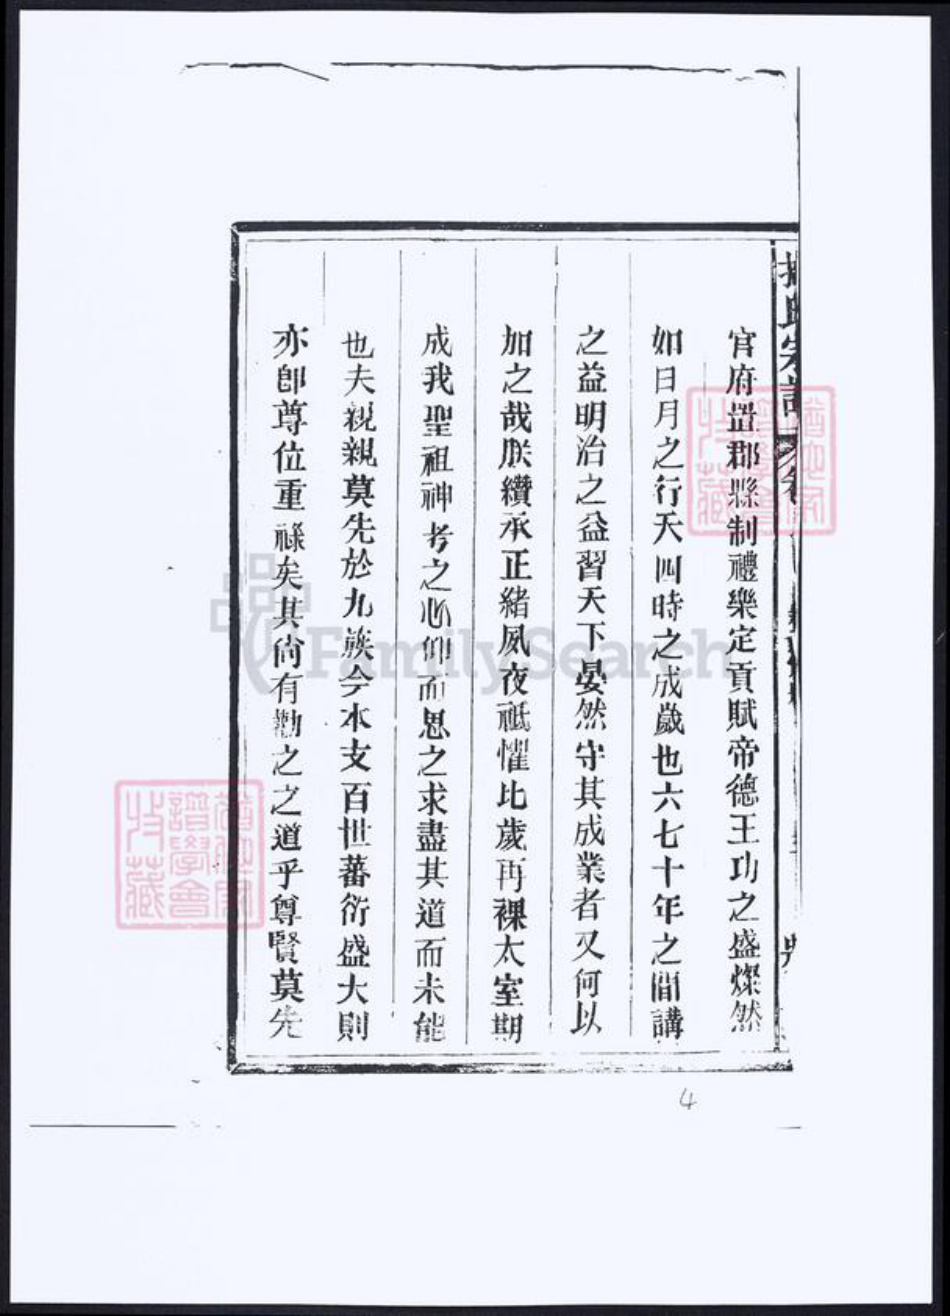 官府置郡縣制禮樂定貢賦帝德王功之盛燦然
如日月之行天四時之成歲也六七十年之間講
之益明治之益習天下晏然守其成業者又何以
加之哉朕纘承正緒夙夜祗懼比歲再祼太室期
成我聖祖神考之心仰而思之求盡其道而未能
也夫親親莫先於九族今本支百世蕃衍盛大則
亦卽尊位重祿矣其尙有勸之之道乎尊賢莫先
4
FamilySearch
譜學會
收藏
譜學會
收藏